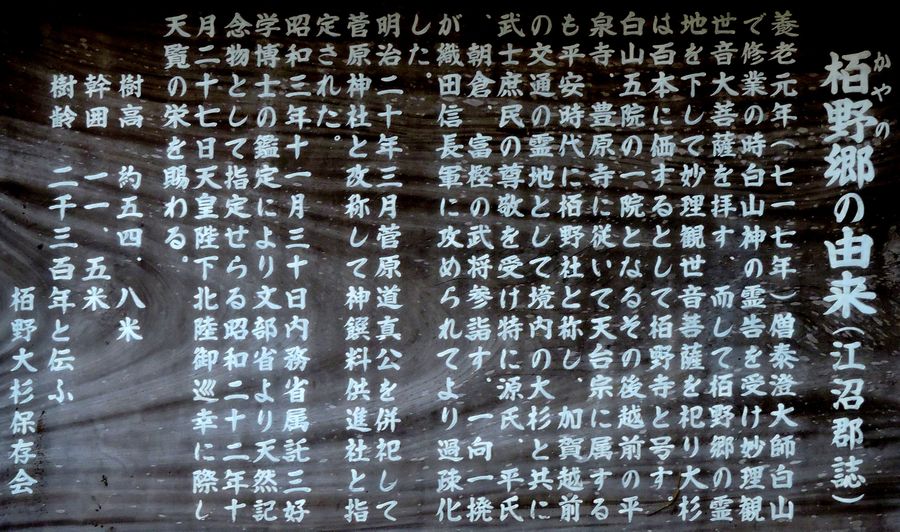 かやの
栢野郷の由来(江沼郡誌)
養老元年(七一七年)僧泰澄大師白山
で修業の時白山神の霊告を受け妙理観
世音大菩薩を拝す 而して栢野郷の霊
地を下して妙理観世音菩薩を祀り大杉
は百本に価するとして栢野寺と号す。
白山五院の一院となるその後越前の平
泉寺。豊原寺に従いて天台宗に属する
も平安時代に栢野社と称し、加賀越前
の交通の霊地として境内の大杉と共に
武士庶民の尊敬を受け特に源氏、平氏
、朝倉、富樫の武将参詣す。一向一揆
が織田信長軍に攻められてより過疎化
した。
明治二十年三月菅原道真公を併祀して
菅原神社と改称して神饌料供進社と指
定された。
昭和三年十一月三十日内務省属託三好
学博士の鑑定により文部省より天然記
念物として指定せらる昭和二十二年十
月二十七日天皇陛下北陸御巡幸に際し
天覧の栄を賜わる。
樹高 約五四、八米
幹囲 一一、五米
樹齢 二千三百年と伝ふ
栢野大杉保存会